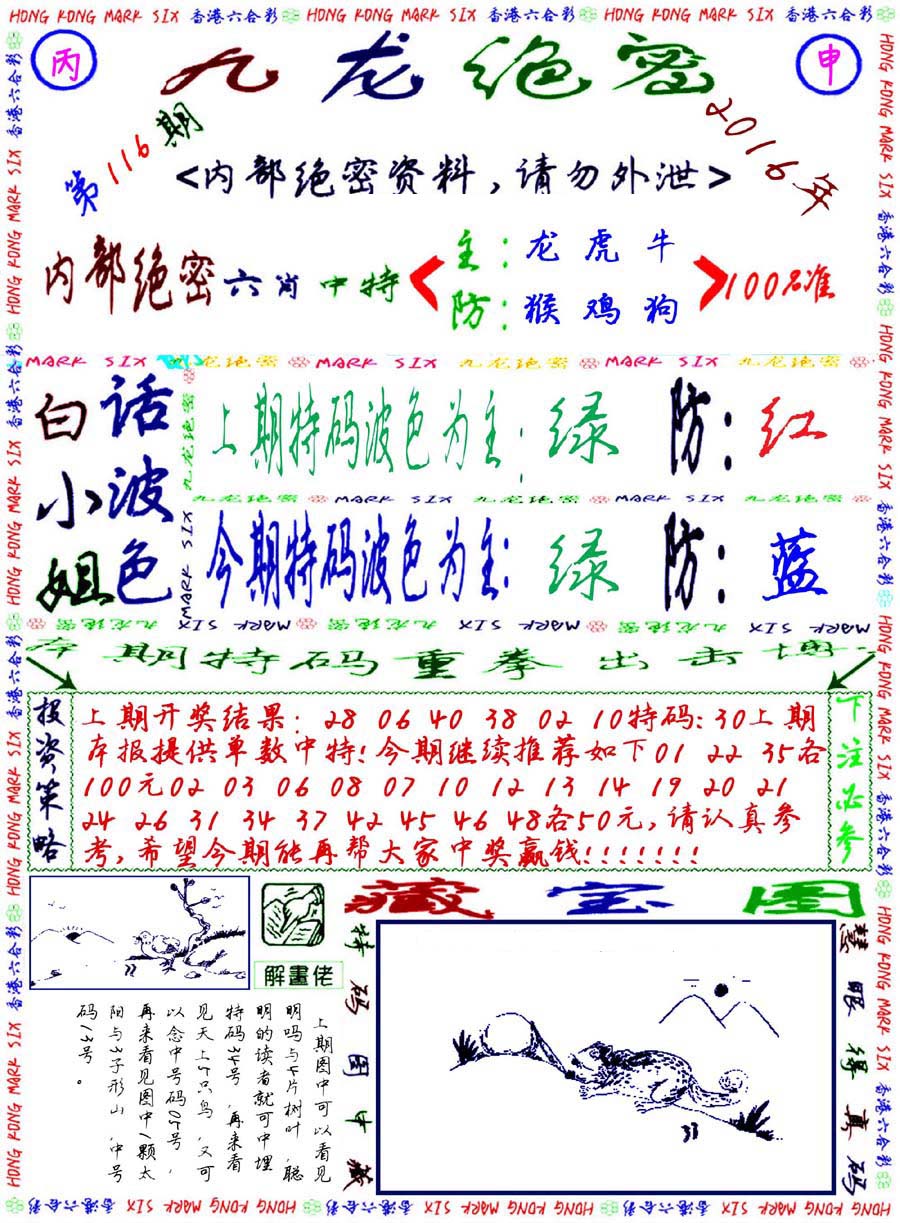 HONG KONG MARK SIX 香港六合彩 HONG KONG MARK SIX 香港六合彩 HONG KONG MARK SIX 香港六合彩
丙
九龙绝密
申
第116期
2016年
<内部绝密资料,请勿外泄>
内部绝密六肖中特
主:龙虎牛
防:猴鸡狗
100%准
MARK SIX 九龙绝密 MARK SIX 九龙绝密 MARK SIX 九龙绝密
白小姐
话波色
上期特码波色为主:绿 防:红
九龙绝密 MARK SIX 九龙绝密 MARK SIX 九龙绝密
今期特码波色为主:绿 防:蓝
本期特码重拳出击博
投资策略
上期开奖结果: 28 06 40 38 02 10特码:30上期
本报提供单数中特!今期继续推荐如下01 22 35各
100元02 03 06 08 07 10 12 13 14 19 20 21
24 26 31 34 37 42 45 46 48各50元,请认真参
考,希望今期能再帮大家中奖赢钱!!!!!!!
下注必参
解畫佬
藏宝图
特码图中藏
慧眼得真码
上期图中可以看见
明吗与4片树叶,聪
明的读者就可中埋
特码34号,再来看
见天上5只鸟,又可
以念中号码05号,
再来看见图中1颗太
阳与3子形山,中号
码13号。